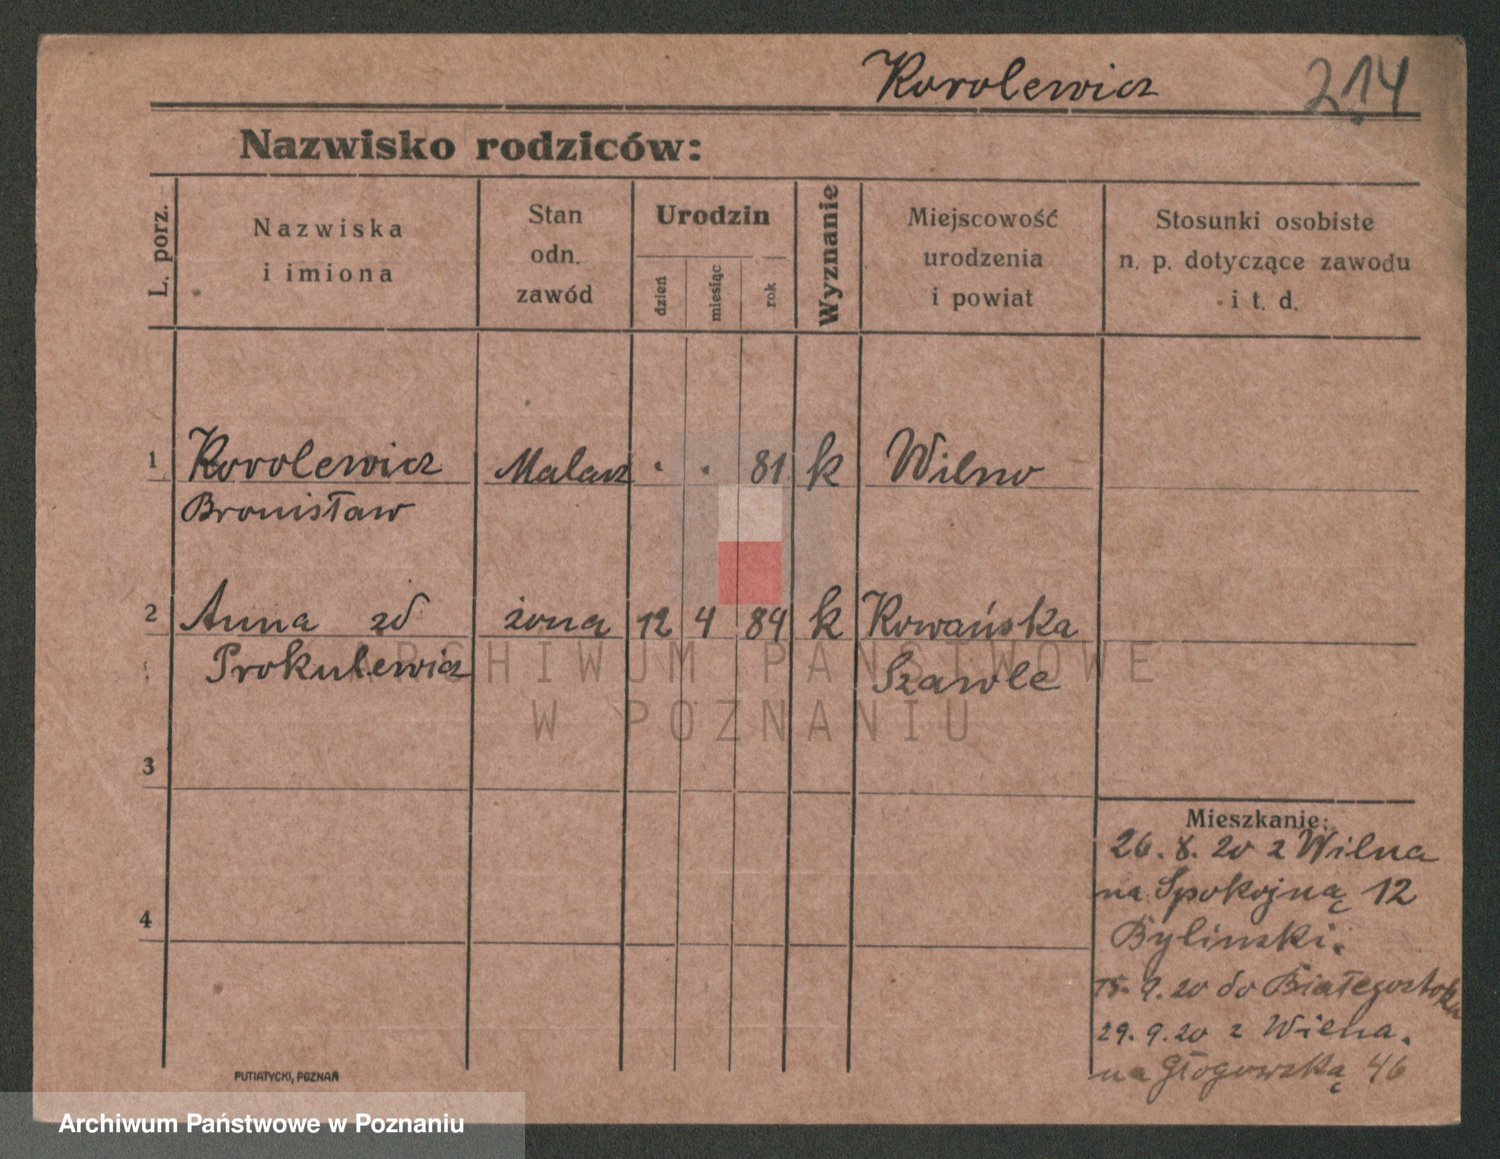 Korolewicz 214
Nazwisko rodziców:
L. porz.
Nazwiska
i imiona
Stan
odn.
zawód
Urodzin
dzień
miesiąc
rok
Wyznanie
Miejscowość
urodzenia
i powiat
Stosunki osobiste
n. p. dotyczące zawodu
i t. d.
1 Korolewicz Malarz . . 81 k Wilno
Bronisław
2 Anna zd żona 12 4 84 k Kowańska
Prokulewicz Szawle
ARCHIWUM PAŃSTWOWE
W POZNANIU
3
Mieszkanie:
26. 8. 20 z Wilna
na Spokojną 12
4
Bylinski.
15. 9. 20 do Białegostoku
29. 9. 20 z Wilna.
na Głogowską 46
PUTIATYCKI, POZNAŃ
Archiwum Państwowe w Poznaniu